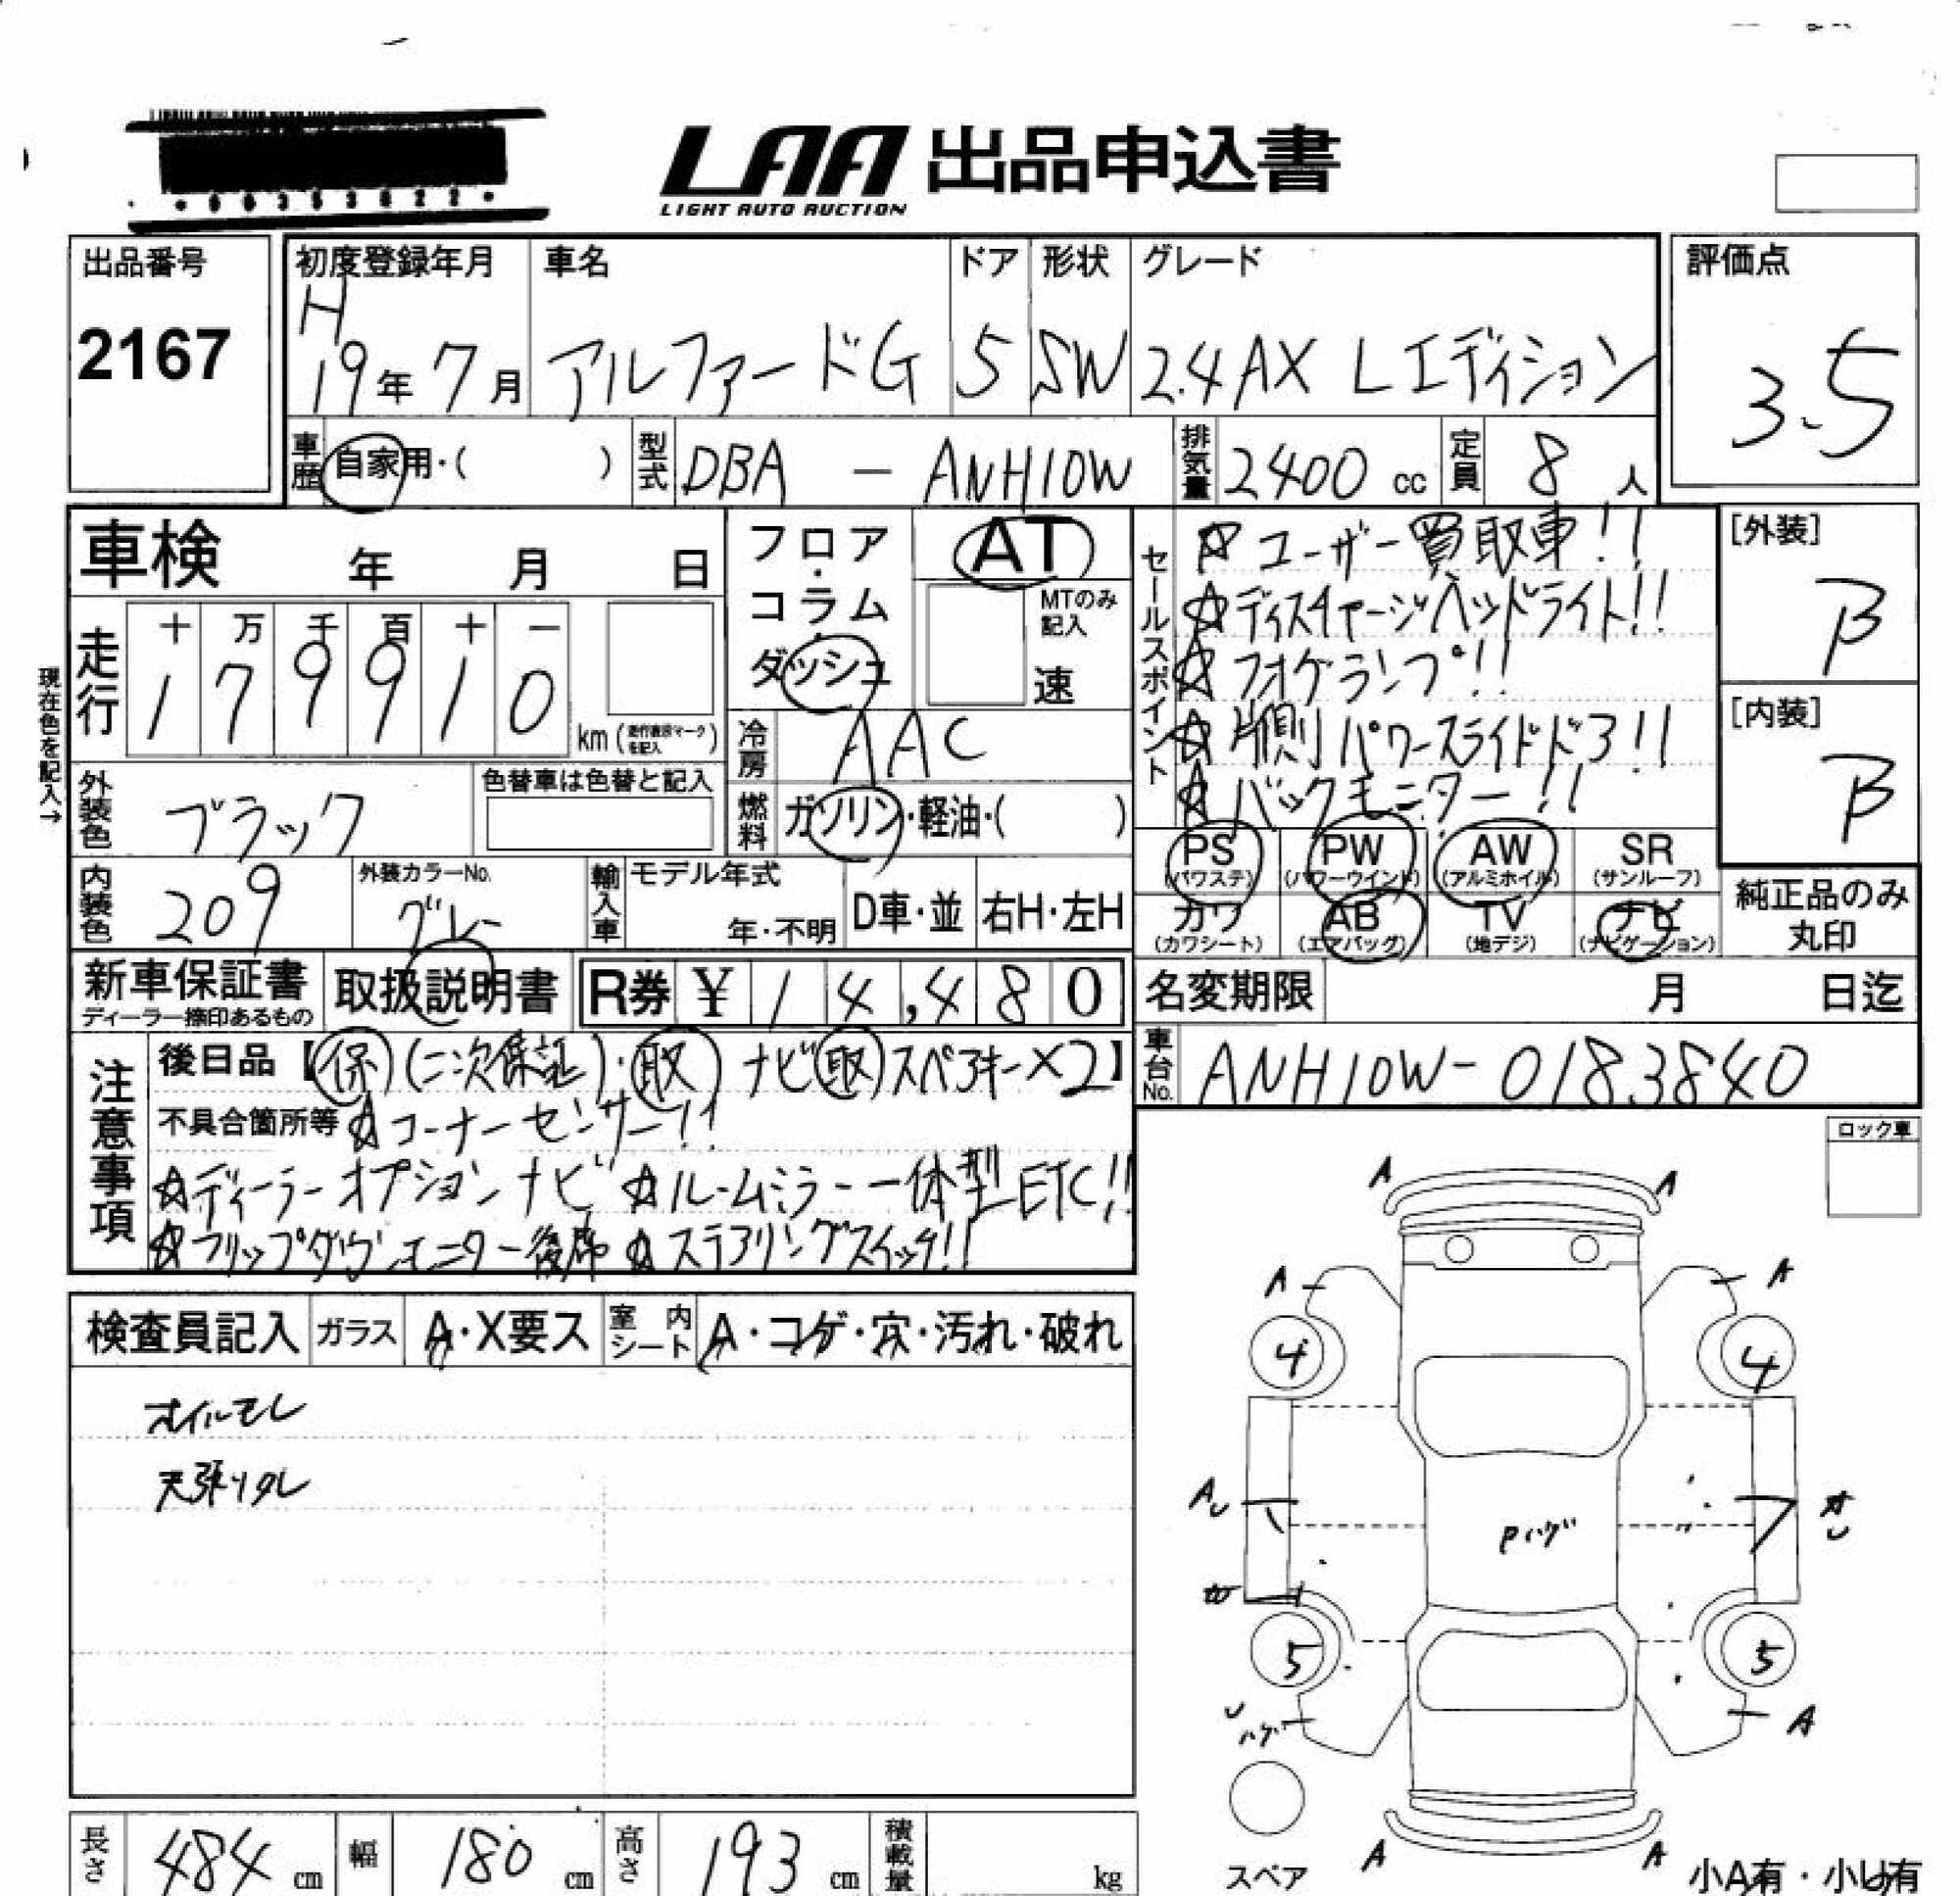 LAA 出品申込書
LIGHT AUTO AUCTION
出品番号
2167
初度登録年月
H
19年 7月
車名
アルファードG
ドア
5
形状
SW
グレード
2.4AX Lエディション
評価点
3.5
車歴
自家用・( )
型式
DBA - ANH10W
排気量
2400 cc
定員
8 人
車検 年 月 日
フロア・コラム・ダッシュ
AT
MTのみ記入
速
セールスポイント
☆ユーザー買取車!!
☆ディスチャージヘッドライト!!
☆フォグランプ!!
☆片側パワースライドドア!!
☆バックモニター!!
[外装]
B
[内装]
B
現在色を記入→
走行
十 万 千 百 十 一
1 7 9 9 1 0
km(走行表示マークを記入)
冷房
AAC
外装色
ブラック
色替車は色替と記入
燃料
ガソリン・軽油・( )
PS (パワステ)
PW (パワーウインド)
AW (アルミホイル)
SR (サンルーフ)
カワ (カワシート)
AB (エアバッグ)
TV (地デジ)
ナビ (ナビゲーション)
純正品のみ丸印
内装色
209
外装カラーNo.
グレー
輸入車
モデル年式
年・不明
D車・並
右H・左H
新車保証書
ディーラー捺印あるもの
取扱説明書
R券 ¥ 14,480
名変期限 月 日迄
注意事項
後日品【保(二次保証)・取 ナビ取 スペアキー×2】
不具合箇所等 ☆コーナーセンサー!!
☆ディーラーオプションナビ ☆ルームミラー一体型ETC!!
☆フリップダウンモニター後席 ☆ステアリングスイッチ!!
車台No.
ANH10W-0183840
ロック車
検査員記入
ガラス
A・X要ス
室内シート
A・コゲ・穴・汚れ・破れ
オイルモレ
天張りタレ
A A
A A
4 4
A
Pハゲ
5 5
ハゲ
A
A A
スペア
小A有・小U有
長さ
484 cm
幅
180 cm
高さ
193 cm
積載量
kg